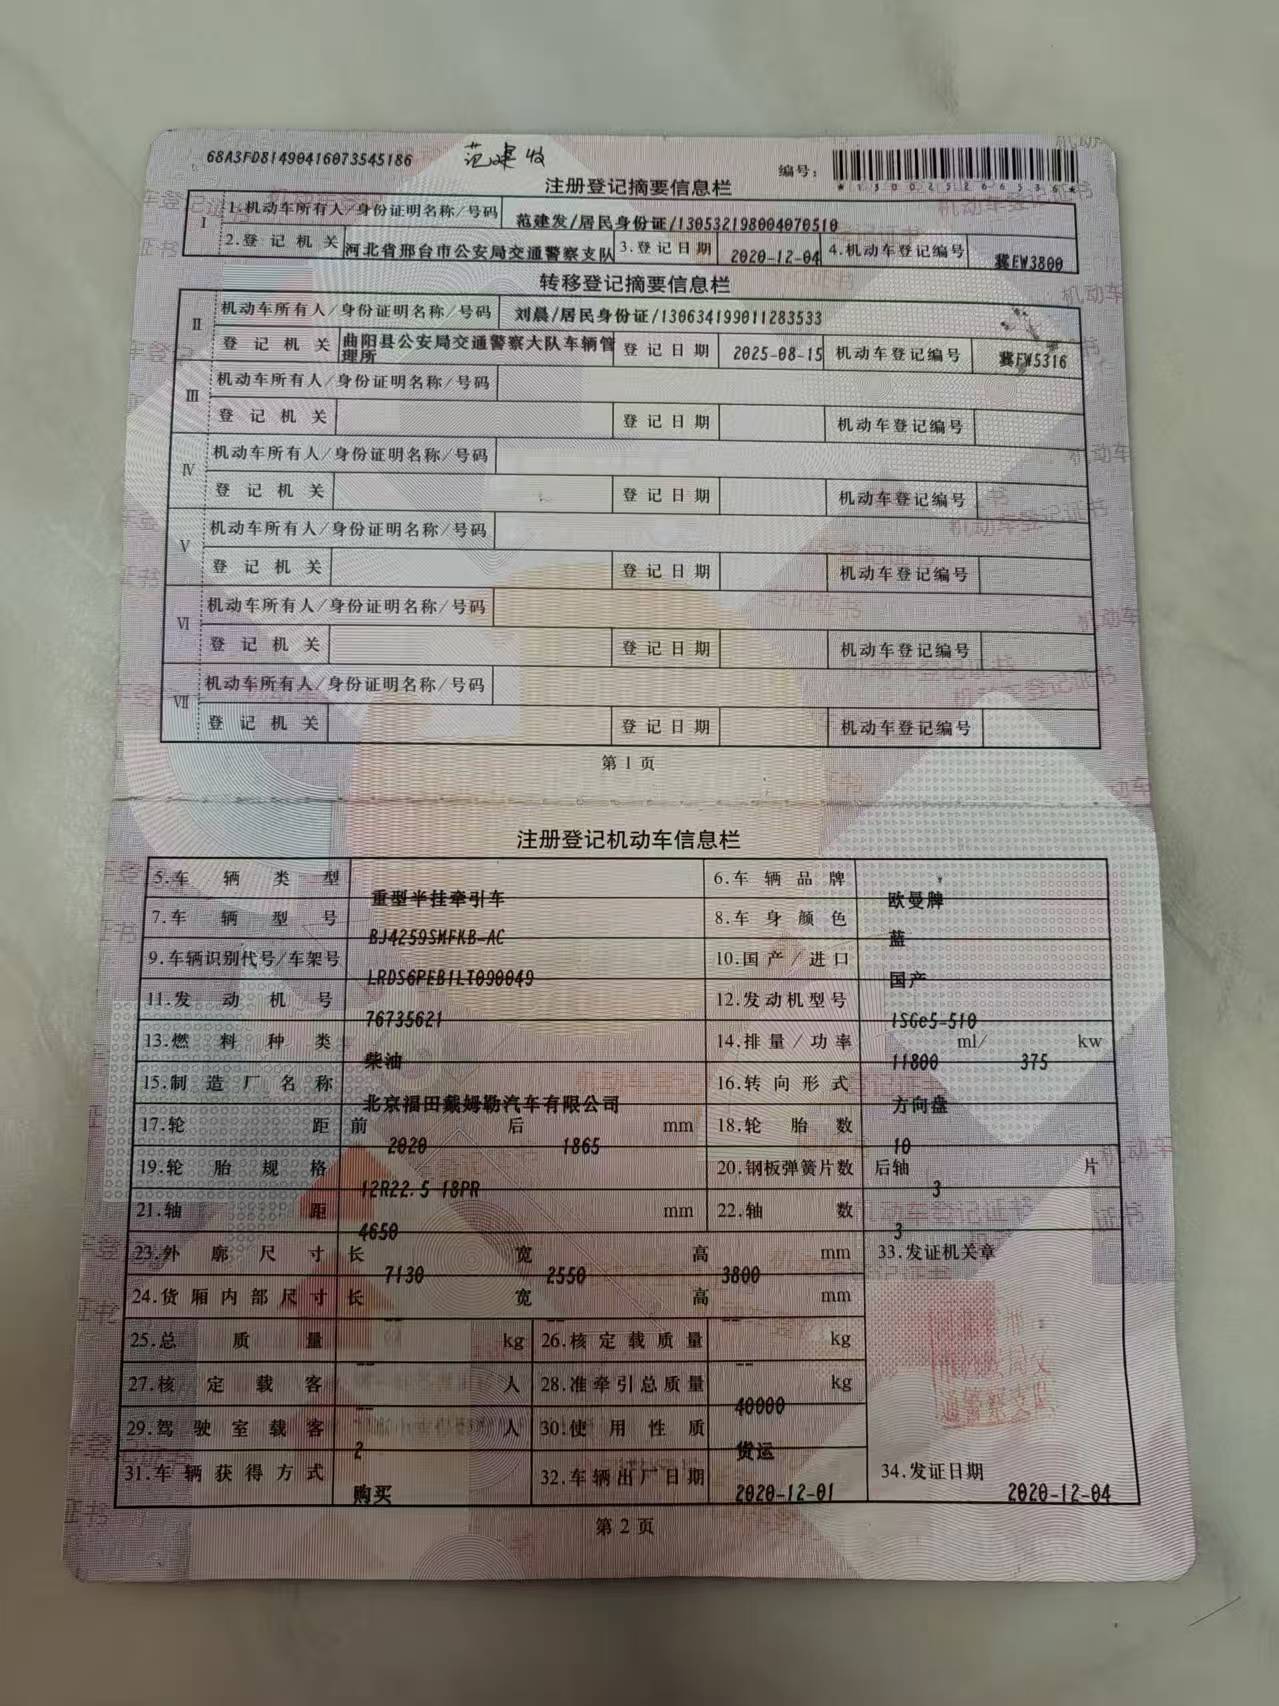 68A3FD81490416073545186
编号：
*130025266536*
注册登记摘要信息栏
I 1.机动车所有人/身份证明名称/号码 范建发/居民身份证/130532198004070510
2.登记机关 河北省邢台市公安局交通警察支队 3.登记日期 2020-12-04 4.机动车登记编号 冀EW3800
转移登记摘要信息栏
II 机动车所有人/身份证明名称/号码 刘晨/居民身份证/130634199011283533
登记机关 曲阳县公安局交通警察大队车辆管理所 登记日期 2025-08-15 机动车登记编号 冀FW5316
III 机动车所有人/身份证明名称/号码
登记机关 登记日期 机动车登记编号
IV 机动车所有人/身份证明名称/号码
登记机关 登记日期 机动车登记编号
V 机动车所有人/身份证明名称/号码
登记机关 登记日期 机动车登记编号
VI 机动车所有人/身份证明名称/号码
登记机关 登记日期 机动车登记编号
VII 机动车所有人/身份证明名称/号码
登记机关 登记日期 机动车登记编号
第1页
注册登记机动车信息栏
5.车辆类型 重型半挂牵引车 6.车辆品牌 欧曼牌
7.车辆型号 BJ4259SMFKB-AC 8.车身颜色 蓝
9.车辆识别代号/车架号 LRDS6PEB1LT090049 10.国产/进口 国产
11.发动机号 76735621 12.发动机型号 ISGe5-510
13.燃料种类 柴油 14.排量/功率 11800 ml/ 375 kw
15.制造厂名称 北京福田戴姆勒汽车有限公司 16.转向形式 方向盘
17.轮距 前 2020 后 1865 mm 18.轮胎数 10
19.轮胎规格 12R22.5 18PR 20.钢板弹簧片数 后轴 3 片
21.轴距 4650 mm 22.轴数 3
23.外廓尺寸 长 7130 宽 2550 高 3800 mm 33.发证机关章
24.货厢内部尺寸 长 -- 宽 -- 高 -- mm
25.总质量 -- kg 26.核定载质量 -- kg
27.核定载客 -- 人 28.准牵引总质量 40000 kg
29.驾驶室载客 2 人 30.使用性质 货运
31.车辆获得方式 购买 32.车辆出厂日期 2020-12-01 34.发证日期 2020-12-04
第2页